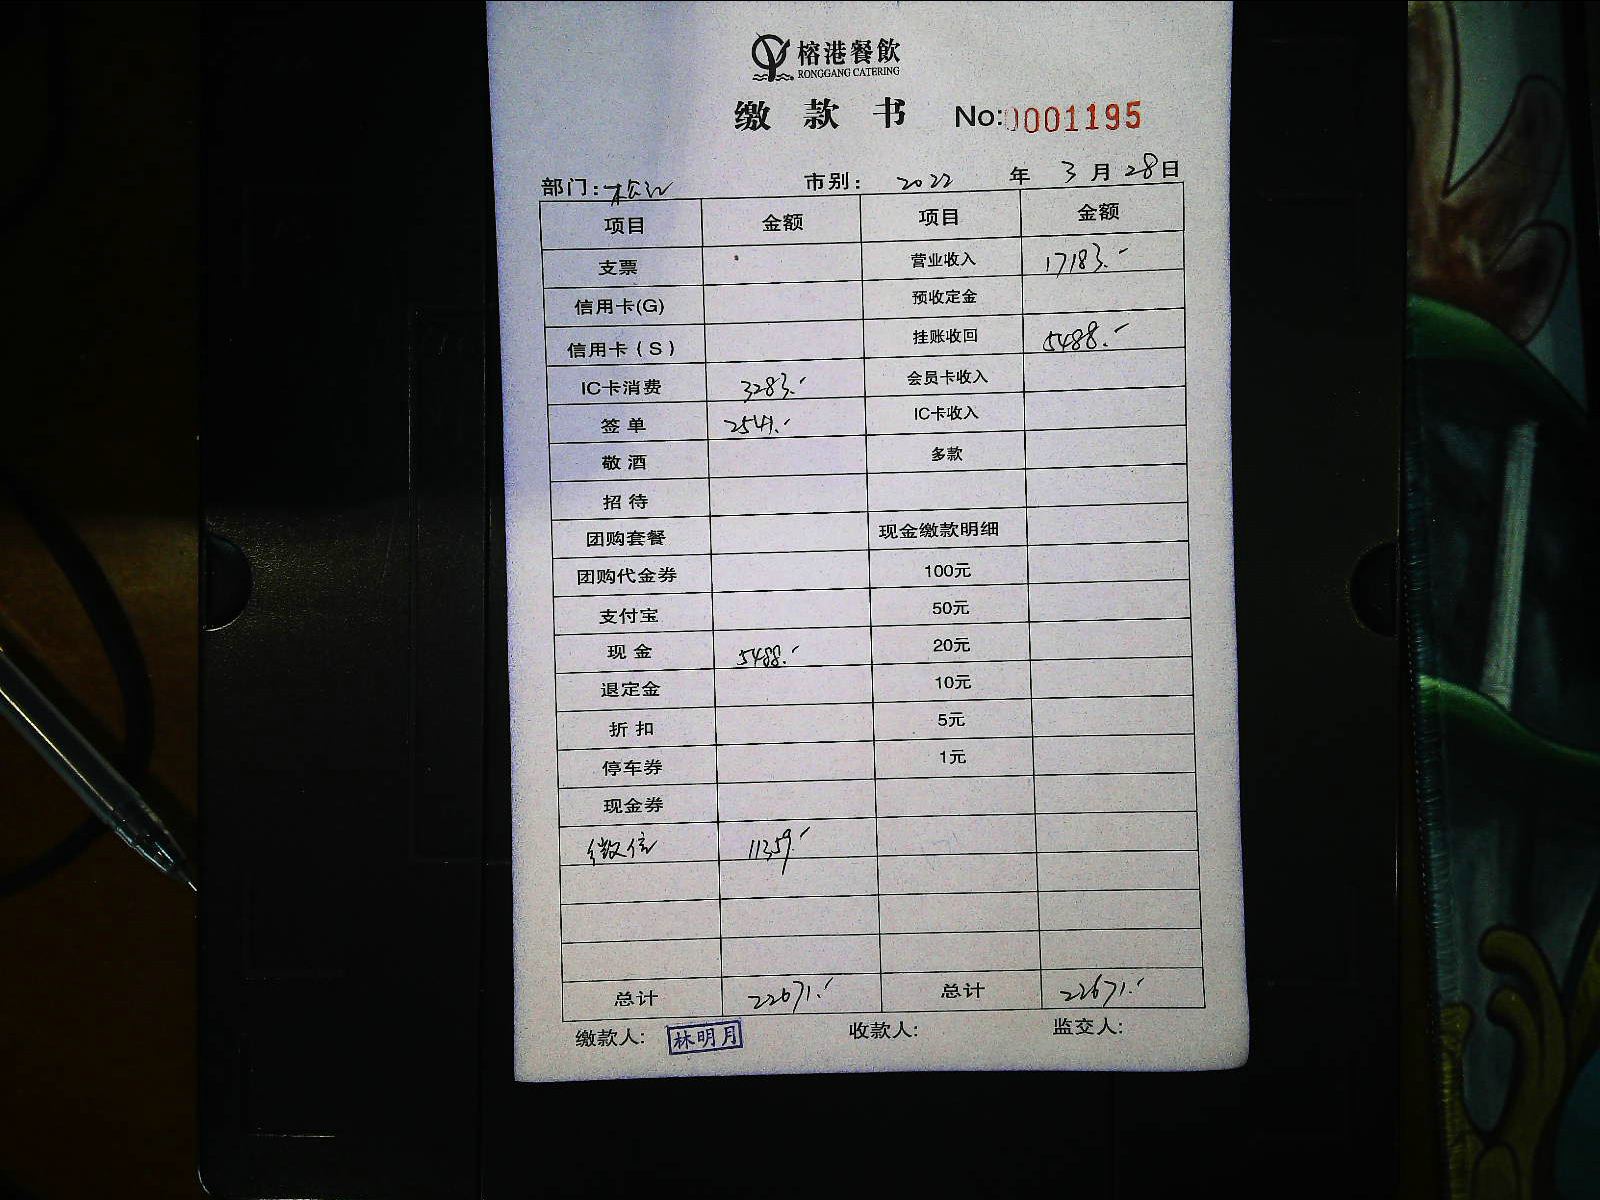 榕港餐飲
RONGGANG CATERING
缴款书 No:0001195
部门: 松江 市别: 2022 年 3 月 28 日
项目 金额 项目 金额
支票 营业收入 17183.-
信用卡(G) 预收定金
信用卡(S) 挂账收回 5488.-
IC卡消费 3283.- 会员卡收入
签单 2541.- IC卡收入
敬酒 多款
招待
团购套餐 现金缴款明细
团购代金券 100元
支付宝 50元
现金 5488.- 20元
退定金 10元
折扣 5元
停车券 1元
现金券
微信 11359.-
总计 22671.- 总计 22671.-
缴款人: 林明月 收款人: 监交人: